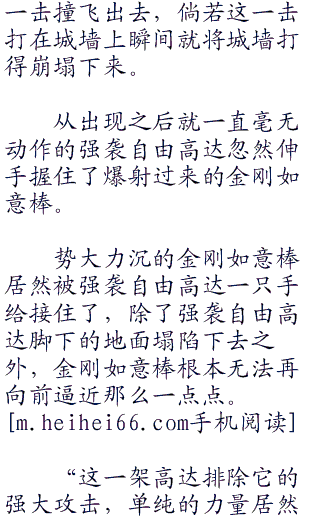 一击撞飞出去，倘若这一击
打在城墙上瞬间就将城墙打
得崩塌下来。
从出现之后就一直毫无
动作的强袭自由高达忽然伸
手握住了爆射过来的金刚如
意棒。
势大力沉的金刚如意棒
居然被强袭自由高达一只手
给接住了，除了强袭自由高
达脚下的地面塌陷下去之
外，金刚如意棒根本无法再
向前逼近那么一点点。
[m.heihei66.com手机阅读]
“这一架高达排除它的
强大攻击，单纯的力量居然